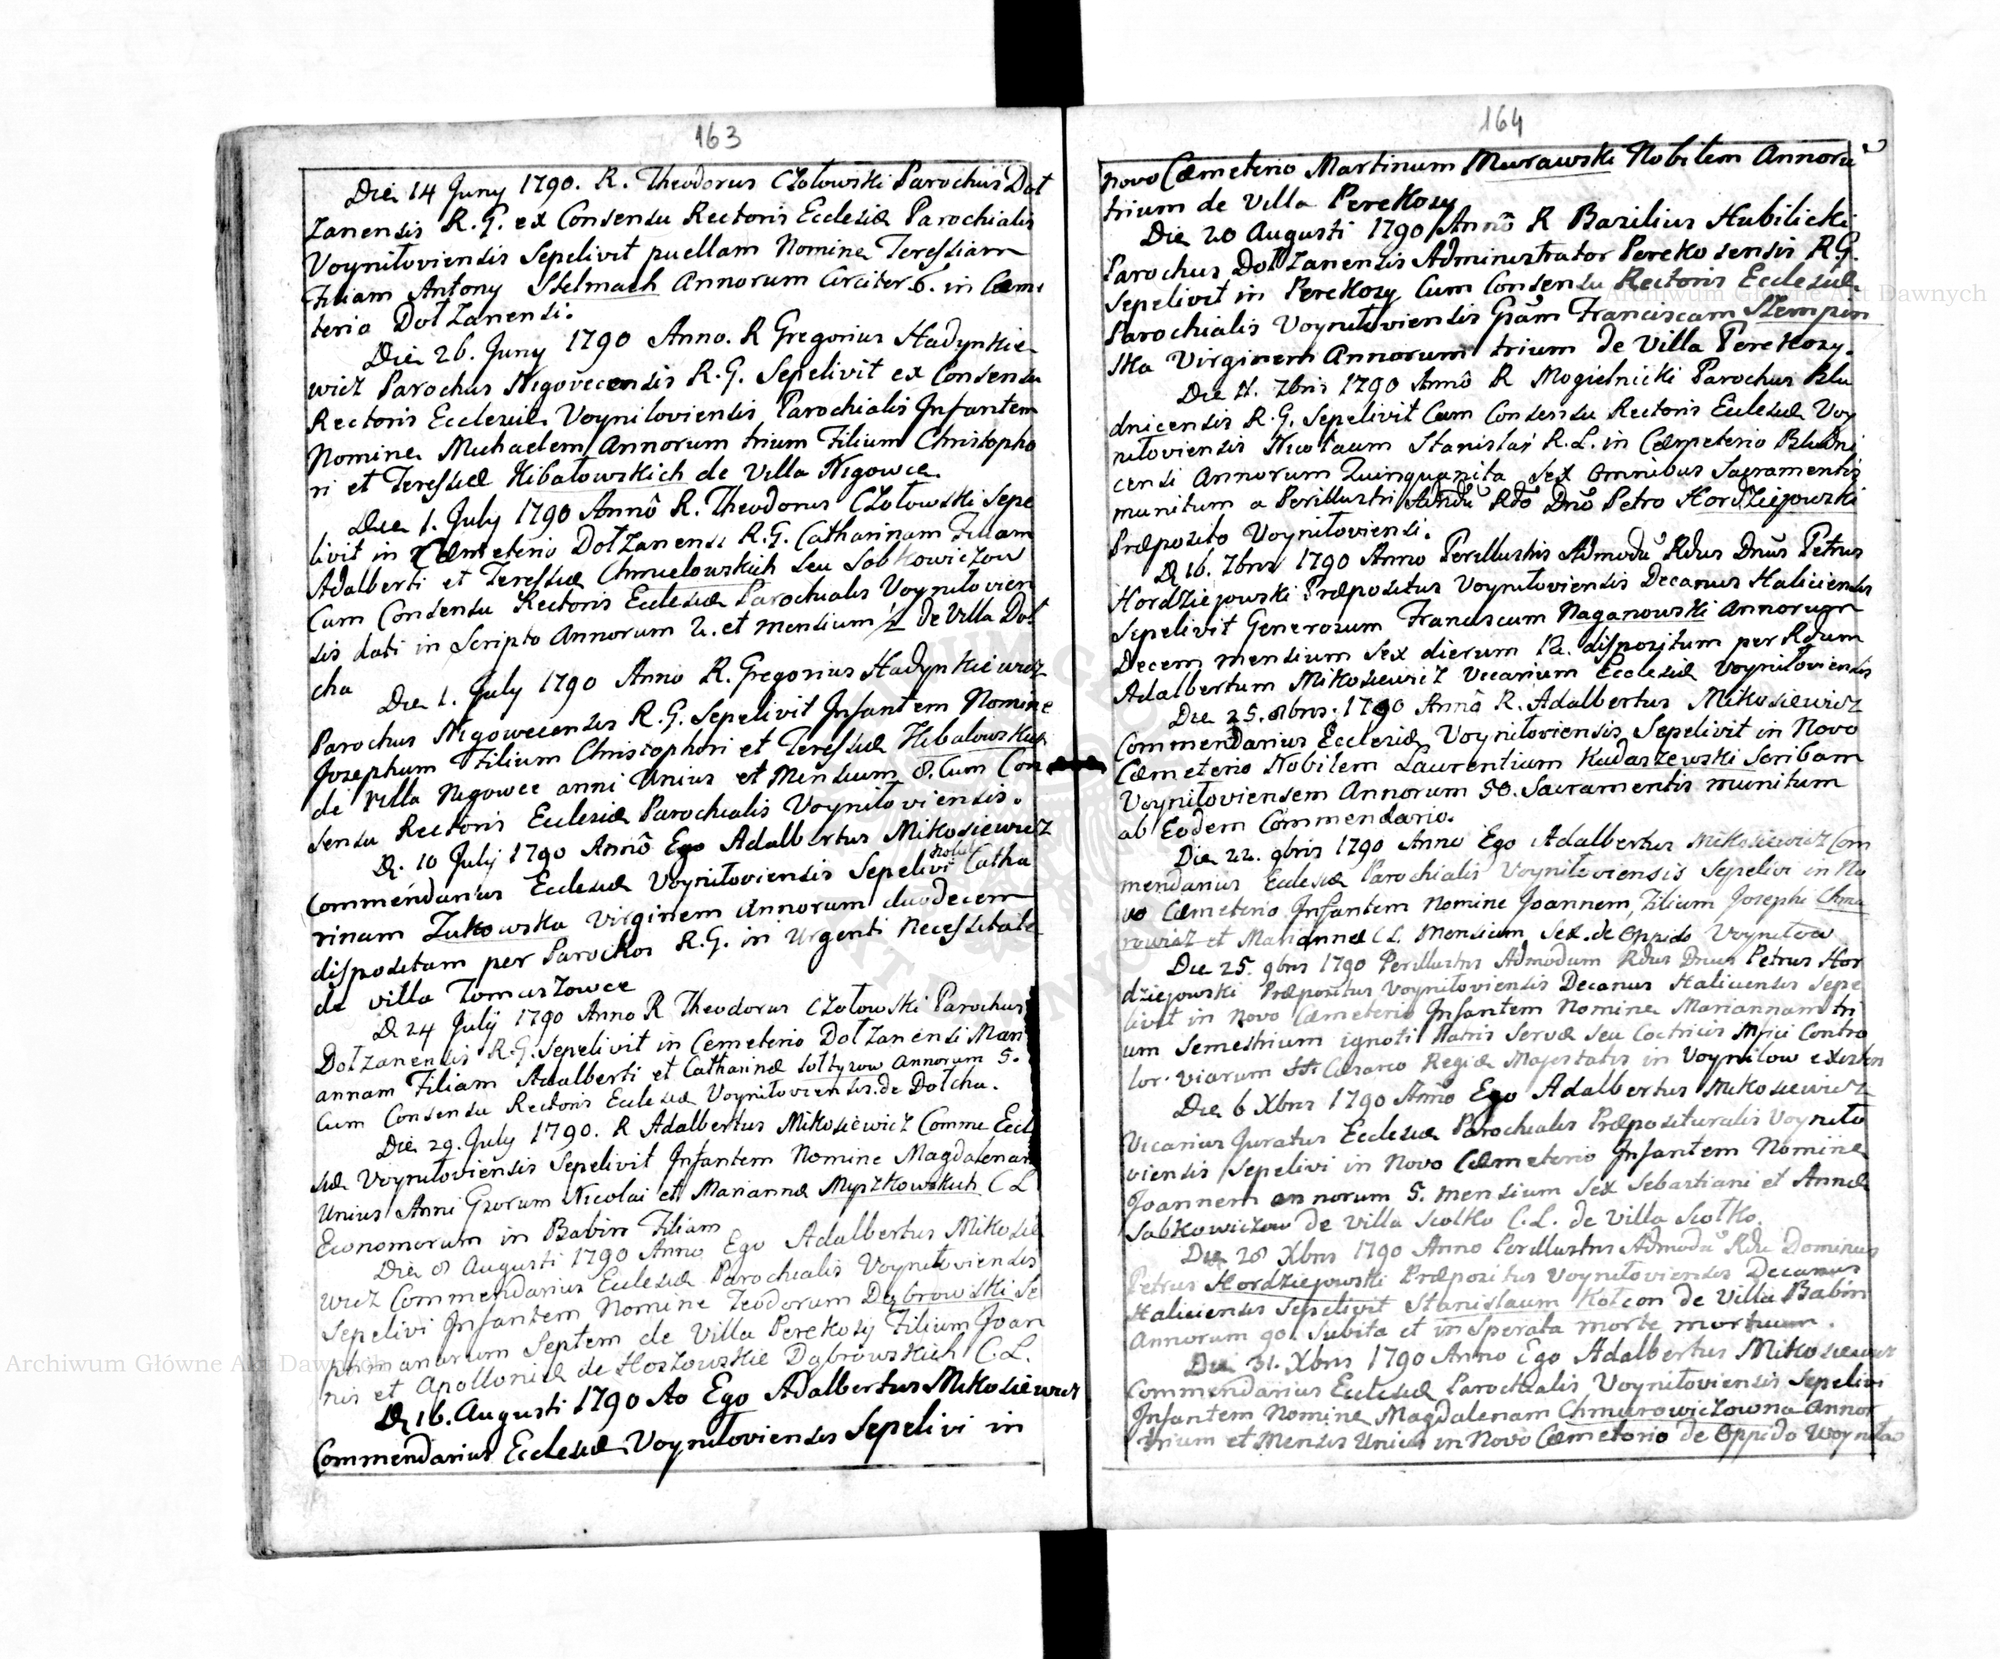 163
Die 14 Juny 1790. R. Theodorus Czołowski Parochus Doł
żanensis R. G. ex Consensu Rectoris Ecclesiæ Parochialis
Voyniłoviensis Sepelivit puellam Nomine Teressiam
Filiam Antony Stelmach Annorum Circiter 6. in Cæme
terio Dołżanensi.
Die 26. Juny 1790 Anno. R Gregorius Hadynkie
wicz Parochus Nigovecensis R. G. Sepelivit ex Consensu
Rectoris Ecclesiæ Voyniloviensis Parochialis Infantem
Nomine Michaelem Annorum trium Filium Christopho
ri et Teressiæ Hibałowskich de Villa Nigowce.
Die 1. July 1790 Annô R. Theodorus Czołowski Sepe
livit in Cæmeterio Dołżanensi R. G. Catharinam Filiam
Adalberti et Teressiæ Chmielowskich seu Sobkowiczow
Cum Consensu Rectoris Ecclesiæ Parochialis Voyniłovien
sis dati in Scripto Annorum 2. et mensium de Villa Doł
cha
Die 1. July 1790 Anno R. Gregorius Hadynkiewicz
Parochus Nigowecensis R. G. Sepelivit Infantem Nomine
Josephum Filium Christophori et Teressiæ Hibałowskich
de Villa Nigowce anni Unius et Mensium 8. Cum Con
sensu Rectoris Ecclesiæ Parochialis Voyniłoviensis.
D. 10 July 1790 Annô Ego Adalbertus Mikosiewicz
Commendarius Ecclesiæ Voyniłoviensis Sepelivi Catha
rinam Żukowska Virginem Annorum duodecem
dispositam per Parochos R. G. in Urgenti Necessitate
de villa Tomaszowce
D 24 July 1790 Anno R Theodorus Czołowski Parochus
Dołżanensis R. G. Sepelivit in Cemeterio Dołżanensi Mari
annam Filiam Adalberti et Catharinæ Sołtysow Annorum 5.
Cum Consensu Rectoris Ecclesiæ Voyniłoviensis de Dołcha.
Die 29. July 1790. R Adalbertus Mikosiewicz Comme Eccle
siæ Voyniłoviensis Sepelivit Infantem Nomine Magdalenam
Unius Anni Gsorum Nicolai et Mariannæ Myszkowskich C L
Economorum in Babin Filiam
Die 8 Augusti 1790 Anno Ego Adalbertus Mikosie
wicz Commendarius Ecclesiæ Parochialis Voyniłoviensis
Sepelivi Infantem Nomine Teodorum Dąbrowski Se
ptimanarum Septem de Villa Perekosy Filium Joan
nis et Apolloniæ de Hoszowskie Dąbrowskich C. L.
D. 16. Augusti 1790 Ao Ego Adalbertus Mikosiewicz
Commendarius Ecclesiæ Voyniłoviensis Sepelivi in
164
novo Cæmeterio Martinum Murawski Nobilem Annoru
trium de Villa Perekosy
Die 20 Augusti 1790 Annô R Basilius Hubilicki
Parochus Dołżanensis Administrator Perekosensis R. G.
Sepelivit in Perekosy Cum Consensu Rectoris Ecclesiæ
Parochialis Voyniłoviensis Gsam Franciscam Stempin
ska Virginem Annorum trium de Villa Perekosy.
Die 11. 7bris 1790 Annô R Mogielnicki Parochus Blu
dnicensis R. G. Sepelivit Cum Consensu Rectoris Ecclesiæ Voy
niłoviensis Nicolaum Stanisłai R. L. in Cæmeterio Bludni
censi Annorum Quinquaginta Sex Omnibus Sacramentis
munitum a Perillustri Admdu Rdo Dno Petro Hordziejowski
Præposito Voyniłoviensi.
D 16. 7bris 1790 Anno Perillustris Admodu Rdus Dnus Petrus
Hordziejowski Præpositus Voyniłoviensis Decanus Haliciensis
Sepelivit Generosum Franciscum Naganowski Annorum
Decem mensium Sex dierum 12. dispositum per Rdum
Adalbertum Mikosiewicz Vicarium Ecclesiæ Voyniłoviensis
Die 25. 8bris 1790 Annô R. Adalbertus Mikosiewicz
Commendarius Ecclesiæ Voyniłoviensis Sepelivit in Novo
Cæmeterio Nobilem Laurentium Kudaszewski Scribam
Voyniłoviensem Annorum 50. Sacramentis munitum
ab Eodem Commendario.
Die 22. 9bris 1790 Anno Ego Adalbertus Mikosiewicz Com
mendarius Ecclesiæ Parochialis Voyniłoviensis Sepelivi in No
vo Cæmeterio Infantem Nomine Joannem, Filium Josephi Chmu
rowicz et Mariannæ C L Mensium Sex. de Oppido Voyniłow
Die 25. 9bris 1790 Perillustris Admodum Rdus Dnus Petrus Hor
dziejowski Præpositus Voyniłoviensis Decanus Haliciensis Sepe
livit in Novo Cæmeterio Infantem Nomine Mariannam tri
um Semestrium ignoti Patris Servæ Seu Coctricis Mfici Contro
lor. Viarum Cæsareo Regiæ Majestatis in Voyniłow existen
Die 6 Xbris 1790 Anno Ego Adalbertus Mikosiewicz
Vicarius Juratus Ecclesiæ Parochialis Præposituralis Voyniło
viensis Sepelivi in Novo Cæmeterio Infantem Nomine
Joannem annorum 5. mensium Sex Sebastiani et Annæ
Sobkowiczow de villa Siołko C. L. de Villa Siołko.
Die 28 Xbris 1790 Anno Perillustris Admodu Rdu Dominus
Petrus Hordziejowski Præpositus Voyniłoviensis Decanus
Haliciensis Sepelivit Stanislaum Kotcon de Villa Babin
Annorum 90. Subita et insperata morte mortuum.
Die 31. Xbris 1790 Anno Ego Adalbertus Mikosiewicz
Commendarius Ecclesiæ Parochialis Voyniłoviensis Sepelivi
Infantem Nomine Magdalenam Chmurowiczowna Annor
trium et Mensis Unius in Novo Cæmeterio de Oppido Woyniłow
Archiwum Główne Akt Dawnych
Archiwum Główne Akt Dawnych